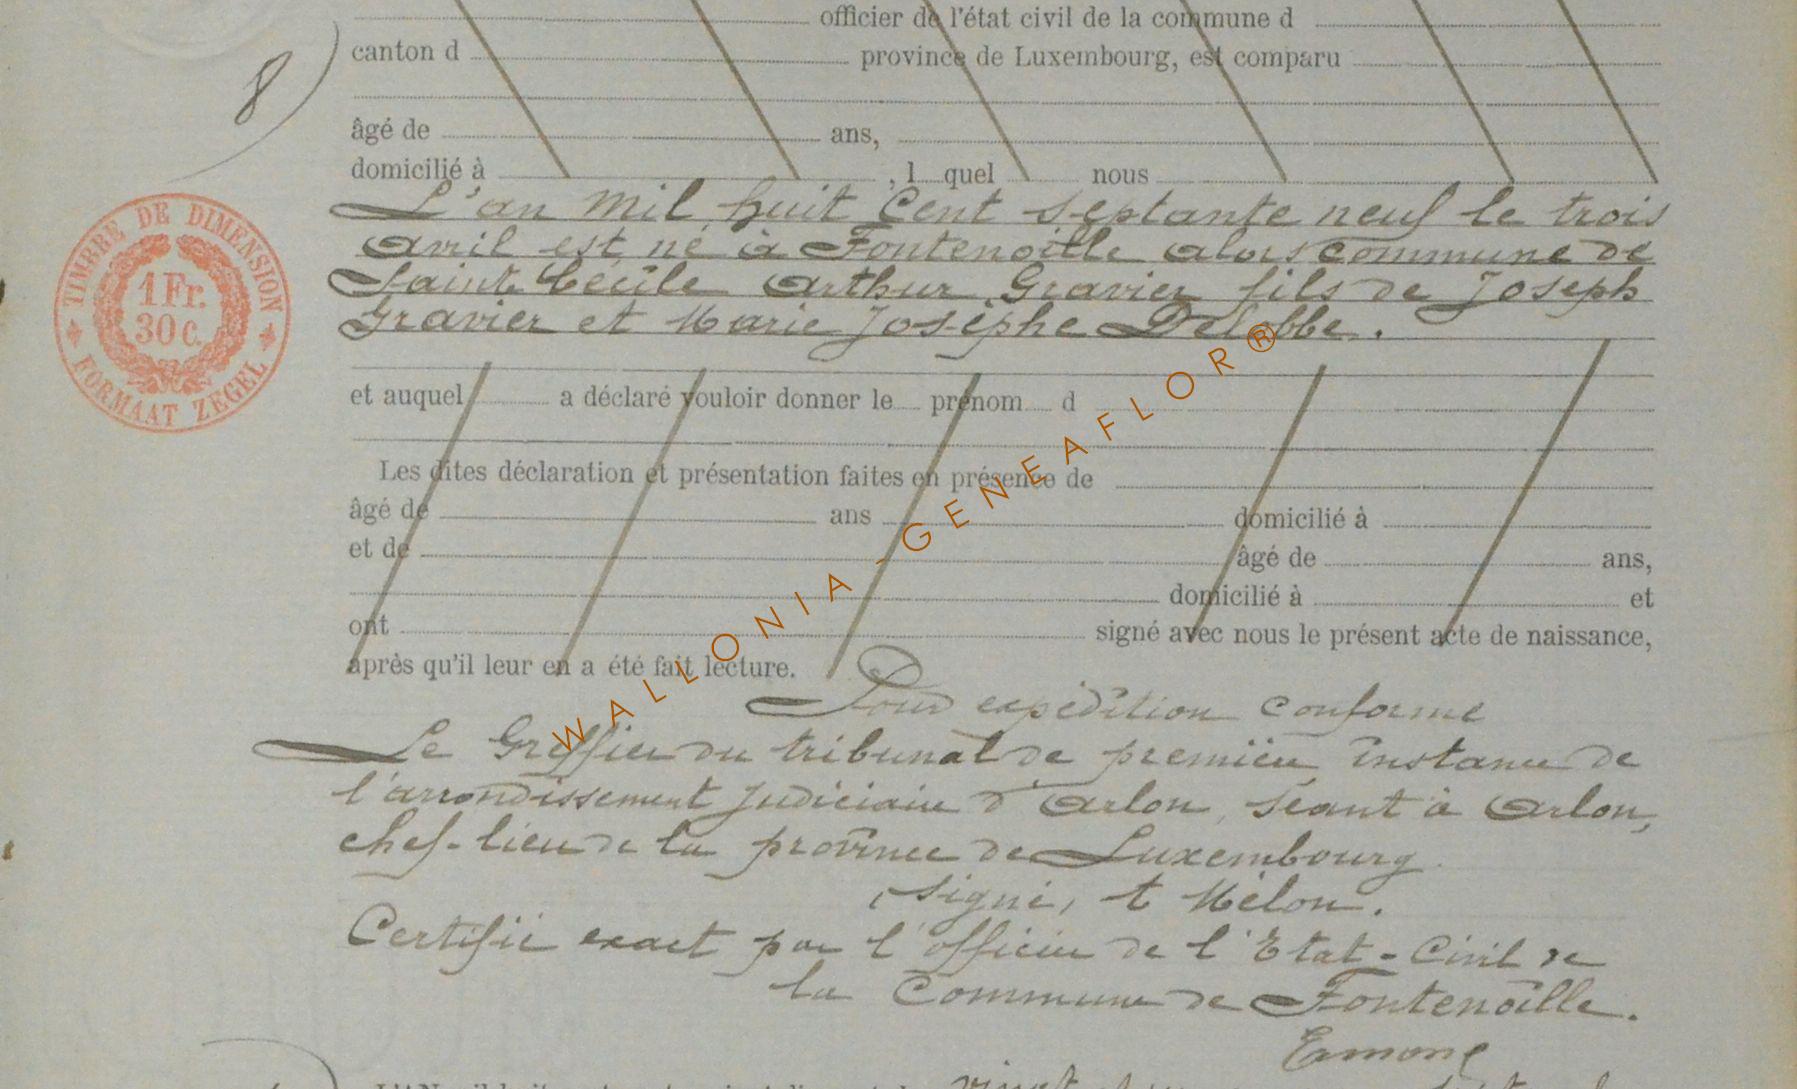 officier de l'état civil de la commune d
canton d province de Luxembourg, est comparu
8)
âgé de ans,
domicilié à , l quel nous
L'an mil huit cent septante neuf le trois
avril est né à Fontenoille alors commune de
Sainte Cécile Arthur Gravier fils de Joseph
Gravier et Marie Josèphe Delobbe.
TIMBRE DE DIMENSION
1 Fr.
30 c.
FORMAAT ZEGEL
et auquel a déclaré vouloir donner le prénom d
Les dites déclaration et présentation faites en présence de
âgé de ans domicilié à
et de âgé de ans,
domicilié à et
ont signé avec nous le présent acte de naissance,
après qu'il leur en a été fait lecture.
WALLONIA - GENEAFLOR®
Pour expédition conforme
Le Greffier du tribunal de première instance de
l'arrondissement judiciaire d'Arlon, séant à Arlon,
chef-lieu de la province de Luxembourg.
(signé) Mélon.
Certifié exact par l'officier de l'Etat-Civil de
la Commune de Fontenoille.
vingt